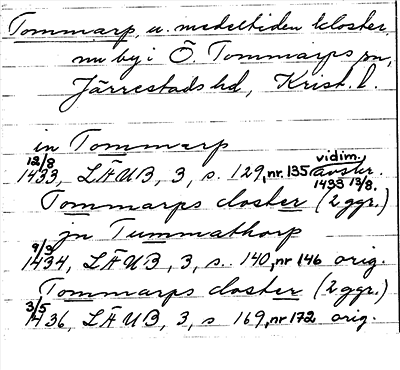 Tommarp, u. medeltiden kloster,
nu by i Ö. Tommarps sn,
Järrestads hd, Krist. l.
in Tommarp
12/8 1433, LÄUB, 3, s. 129, nr. 135 vidim. avskr. 1433 13/8.
Tommarps closter (2 ggr.)
jn Tummathorp
9/3 1434, LÄUB, 3, s. 140, nr 146 orig.
Tommarps closter (2 ggr.)
3/5 1436, LÄUB, 3, s 169, nr 172 orig.